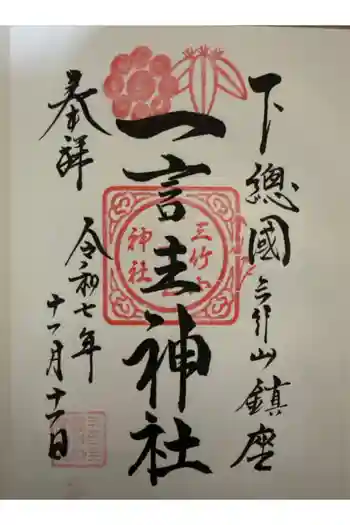 下總國三竹山鎮座
一言主神社
奉拝
令和七年
十一月十一日
三竹山
神社